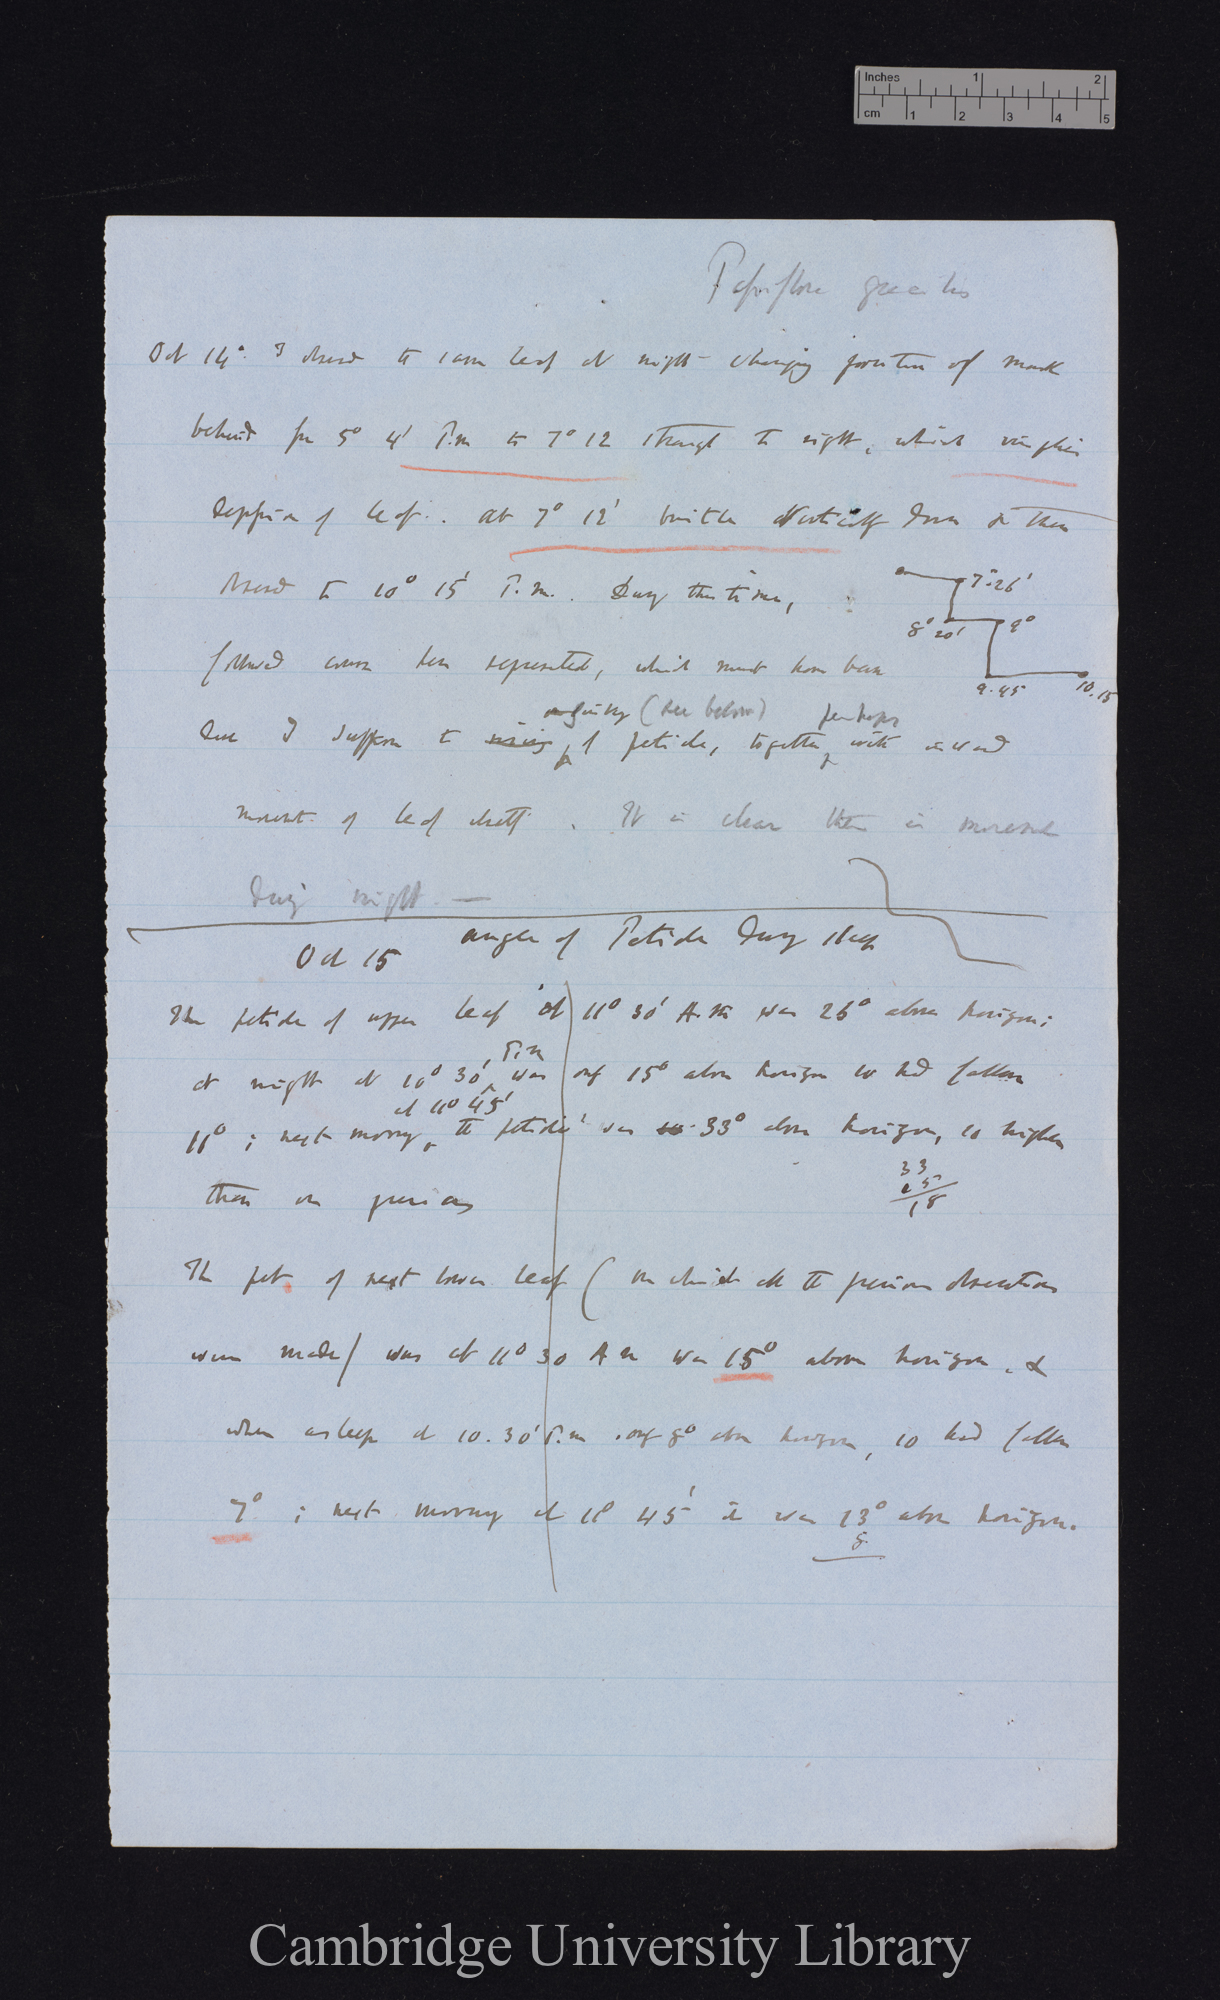 Inches 1 2
cm 1 2 3 4 5
Passiflora gracilis
Oct 14° I observed the same leaf at night changing position of mark
behind from 5° 4' P.m to 7° 12 straight to right, which implies
depression of leaf. At 7° 12' vertically down & then
observed to 10° 15' P.m. During this time,
7° 26'
8° 20' 9°
followed course here represented, which must have been
9.45 10.15
(see below) perhaps
due I suppose to rising of petiole, together with inward
movement of leaf itself. It is clear there is movement
During night —
Oct 15 angle of Petiole During sleep
The petiole of upper leaf at 11° 30' A.m was 26° above horizon;
P.m
at night at 10° 30', was only 15° above horizon so had fallen
at 11° 45'
11° ; next morning, the petiole was 33° above horizon, so higher
33
18
than on previous
The pet of next lower leaf (on which all the previous observations
were made) was at 11° 30 A m was 15° above horizon, &
when asleep at 10.30' P.m only 8° above horizon, so had fallen
7° ; next morning at 11° 45' it was 23° above horizon.
8
Cambridge University Library